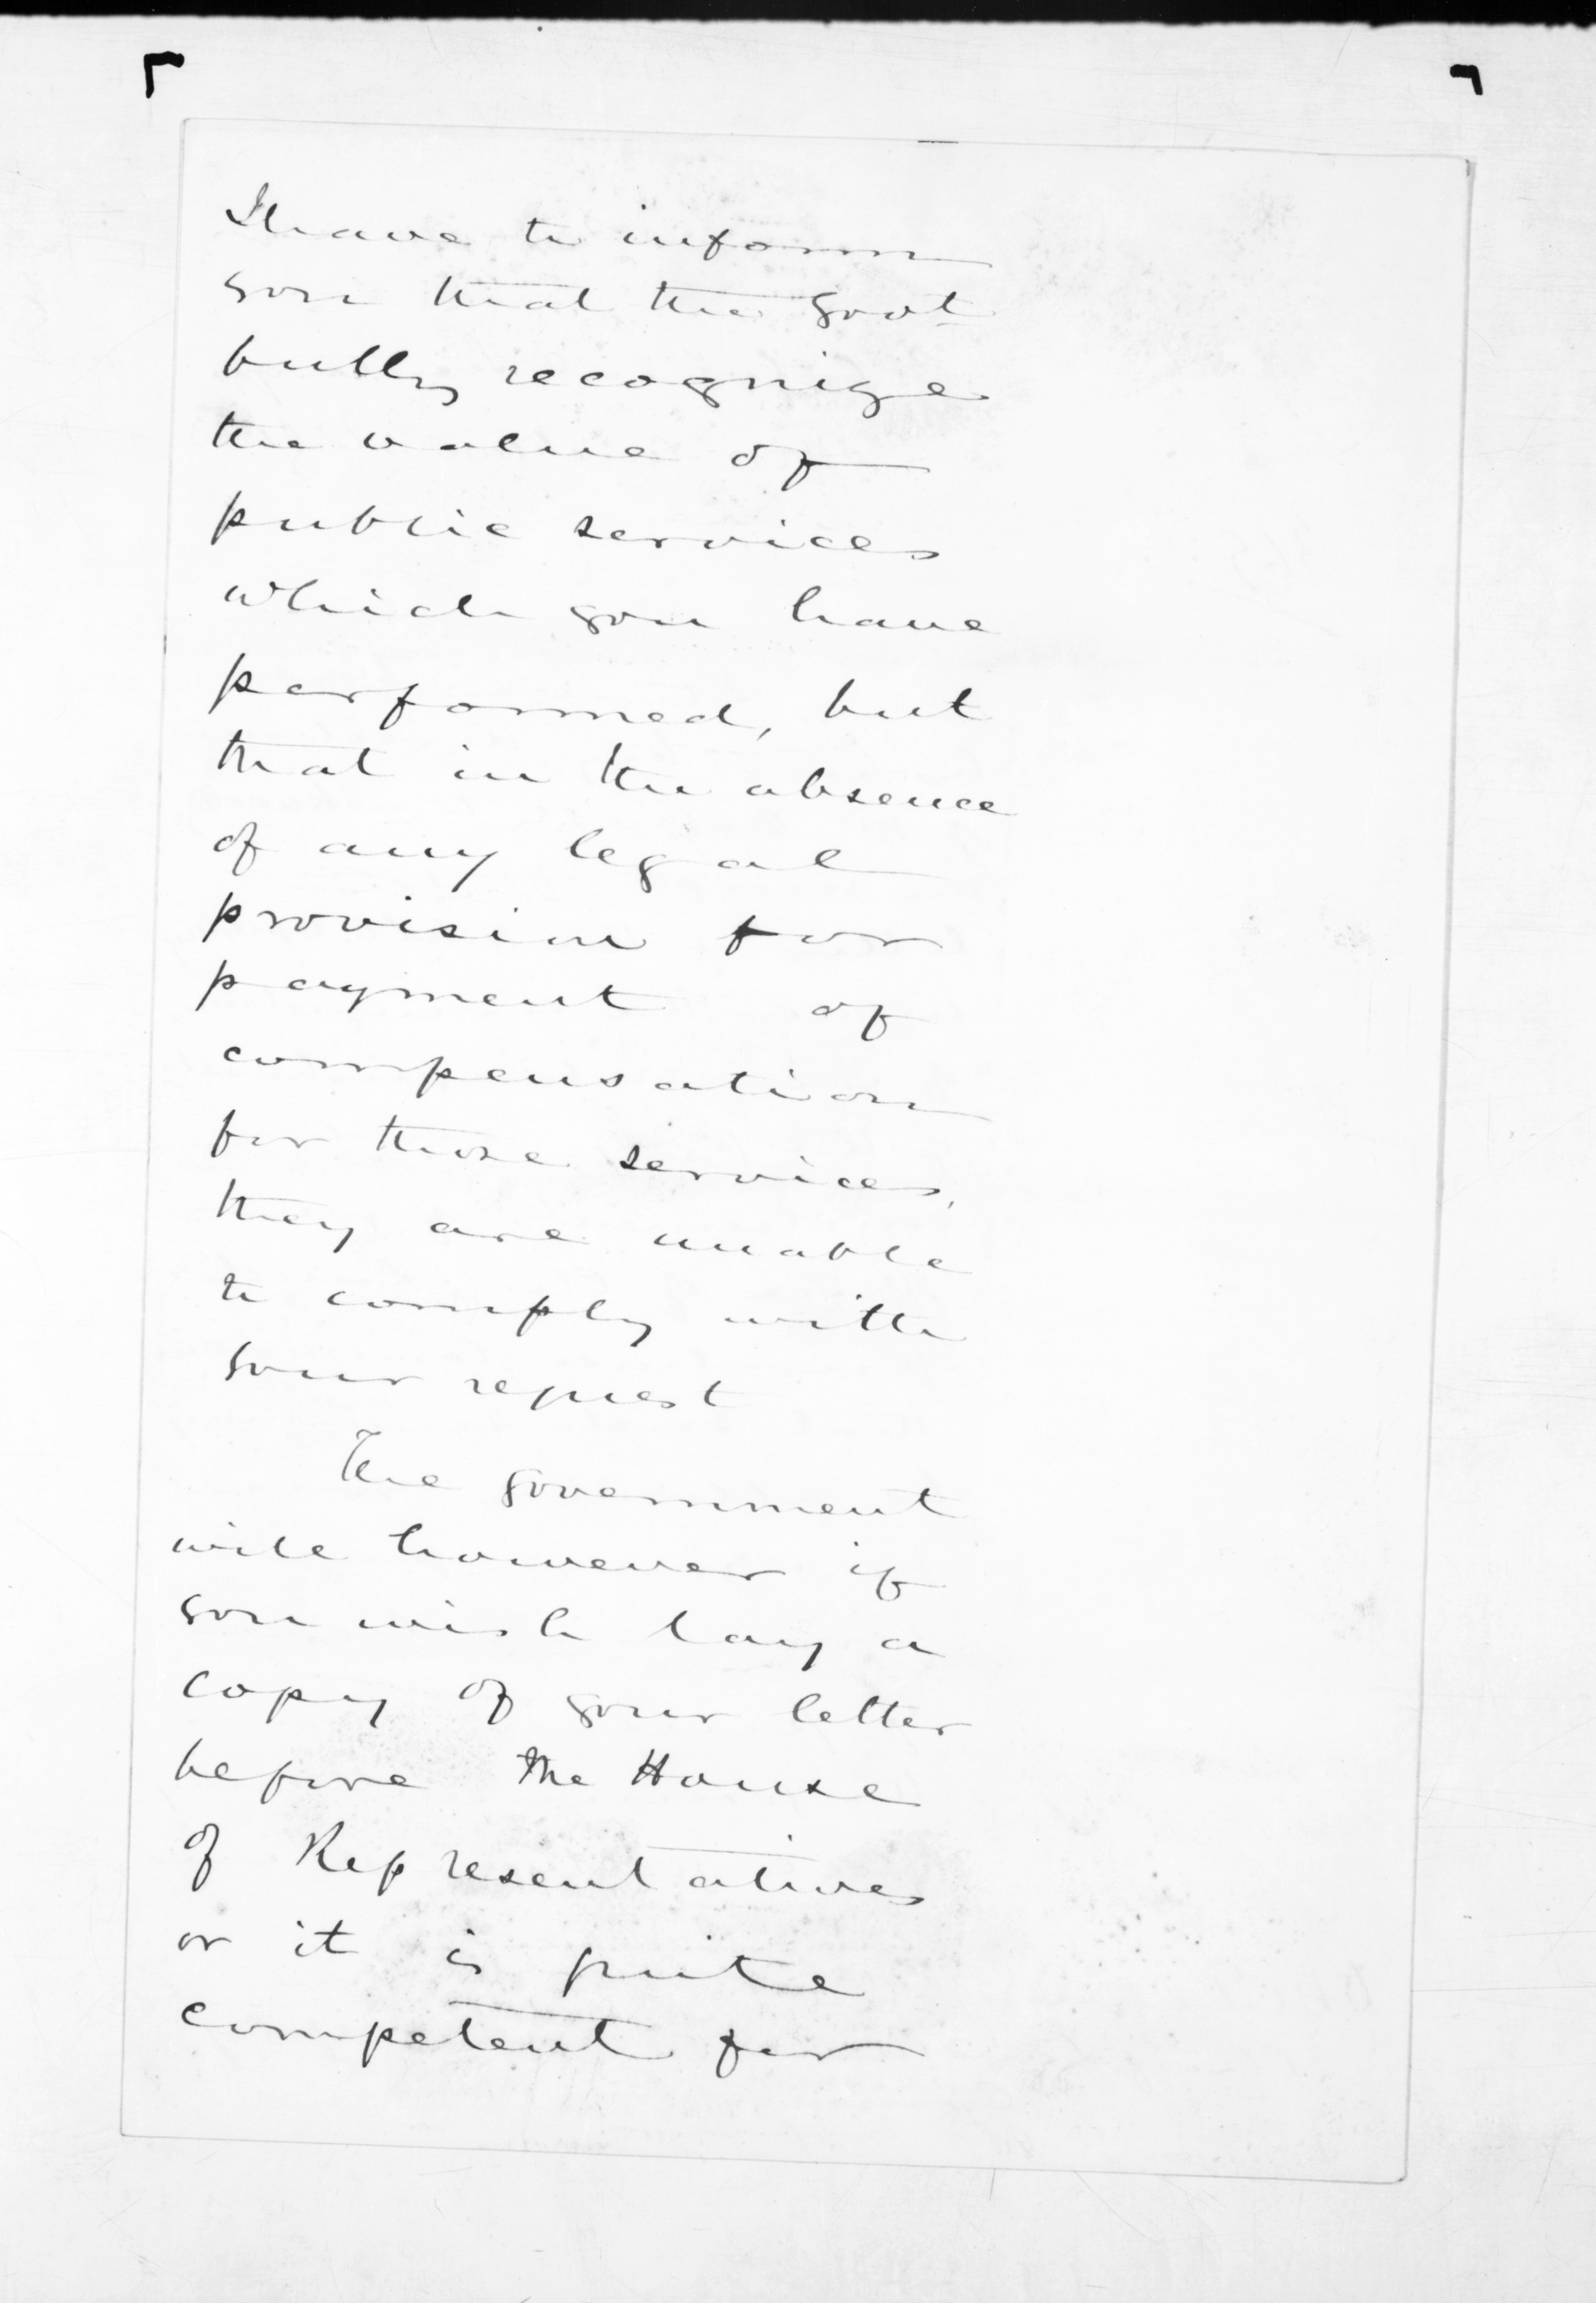 I have to inform
you that the Govt
fully recognize
the value of
public services
which you have
performed, but
that in the absence
of any legal
provision for
payment of
compensation
for those services,
they are unable
to comply with
your request
The Government
will however if
you wish lay a
copy of your letter
before the House
of Representatives
or it is quite
competent for